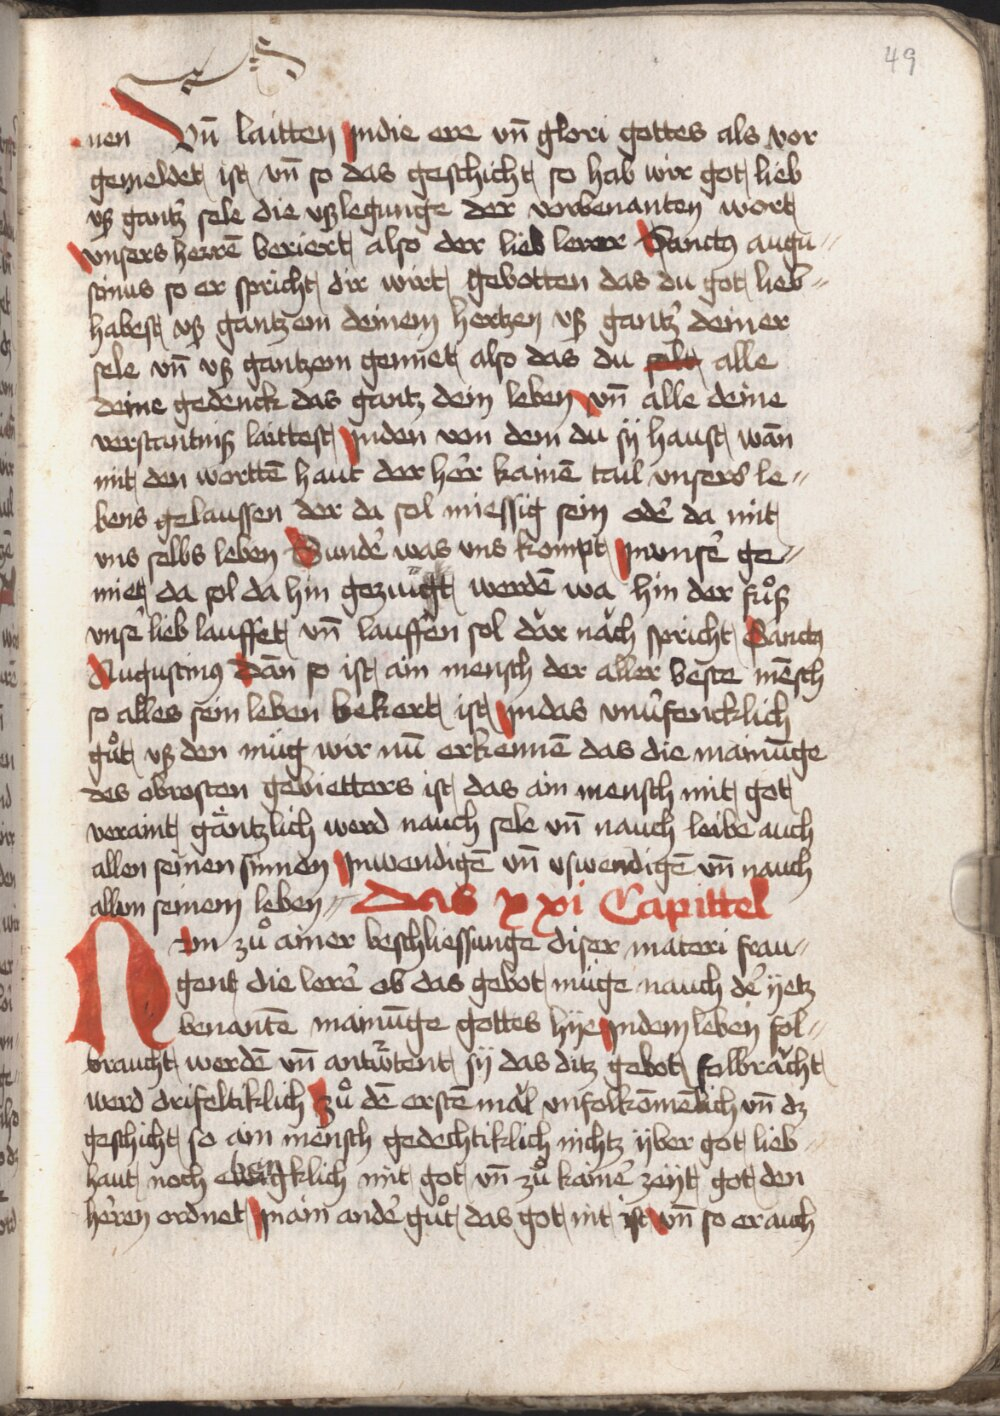 49
nen Vn̄ laitten Jndie ere vn̄ glori gottes als vor
gemeldet ist vn̄ so das geschicht so hab wir got lieb
vß gantz̕ sele die vßlegunge der vorbenanten wort
vnsers herrē beriert also der lieb lerer Sanctꝰ augu
stinus so er spricht dir wirt gebotten das du got lieb
habest vß gantzem deinem hertzen vß gantz̕ deiner
sele vn̄ vß gantzem gemiet also das du alle
deine gedenck das gantz dein leben vn̄ alle deine
verstantniß laittest Jnden von dem du sÿ haust wān
mit den worttē haut der her̕r kainē tail vnsers le
bens gelaussen der da sol miessig sein ode̕ da mit
vns selbs leben Sunde̕ was vns kompt Jnvnse̕ ge
miet da sol da hin gezuigt werdē wa hin der fůß
vnse̕ lieb lauffet vn̄ lauffen sol dar nach spricht Sanctꝰ
Augustinꝰ Dān so ist ain mensch der aller beste mēsch
so alles sein leben bekert ist Jndas vnuͤfencklich
gůt vß den müg wir nū erkennē das die mainūge
des obrosten gebietters ist das ain mensch mit got
veraint gäntzlich werd nauch sele vn̄ nauch leibe auch
allen seinen sinnen Jnwendigē vn̄ vswendigē vn̄ nauch
allem seinem leben Das xxi Capittel
Nvn zů ainer beschliessunge diser materi frau
gent die lere̕ ob das gebot müge nauch de̕ ÿetz
benantē mainūge gottes hÿe Jndem leben fol
braucht werdē vn̄ antw̕tent sÿ das ditz gebot folbracht
werd drifeltiklich Zů dē erstē mal vnfolkōmēlich vn̄ dz
geschicht so ain mensch gedechtiklich nichtz ÿber got lieb
haut noch mit got vn̄ zů kaine̕ zeÿt got den
he̕ren ordnet Jn ain ande̕ gůt das got nit ist vn̄ so er auch